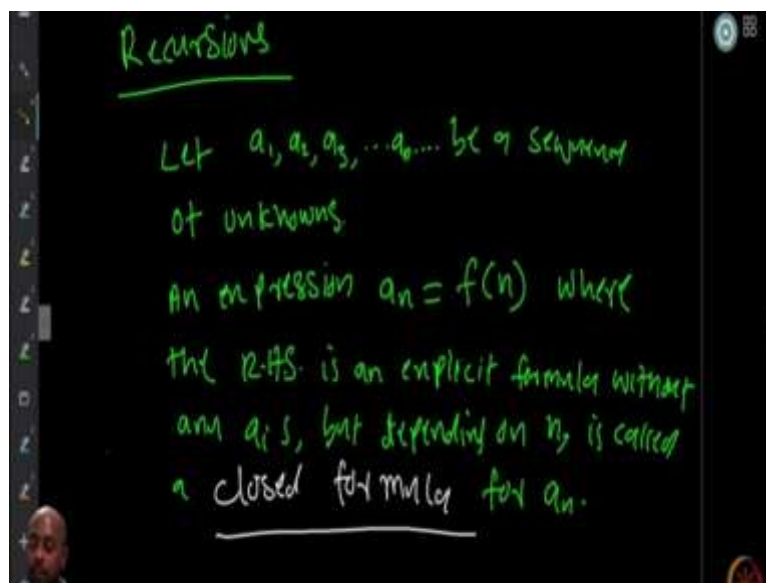 Recursions
Let a₁, a₂, a₃, ...aₙ.... be a sequence
of unknowns.
An expression aₙ = f(n) where
the R.H.S. is an explicit formula without
any aᵢ s, but depending on n, is called
a closed formula for aₙ.